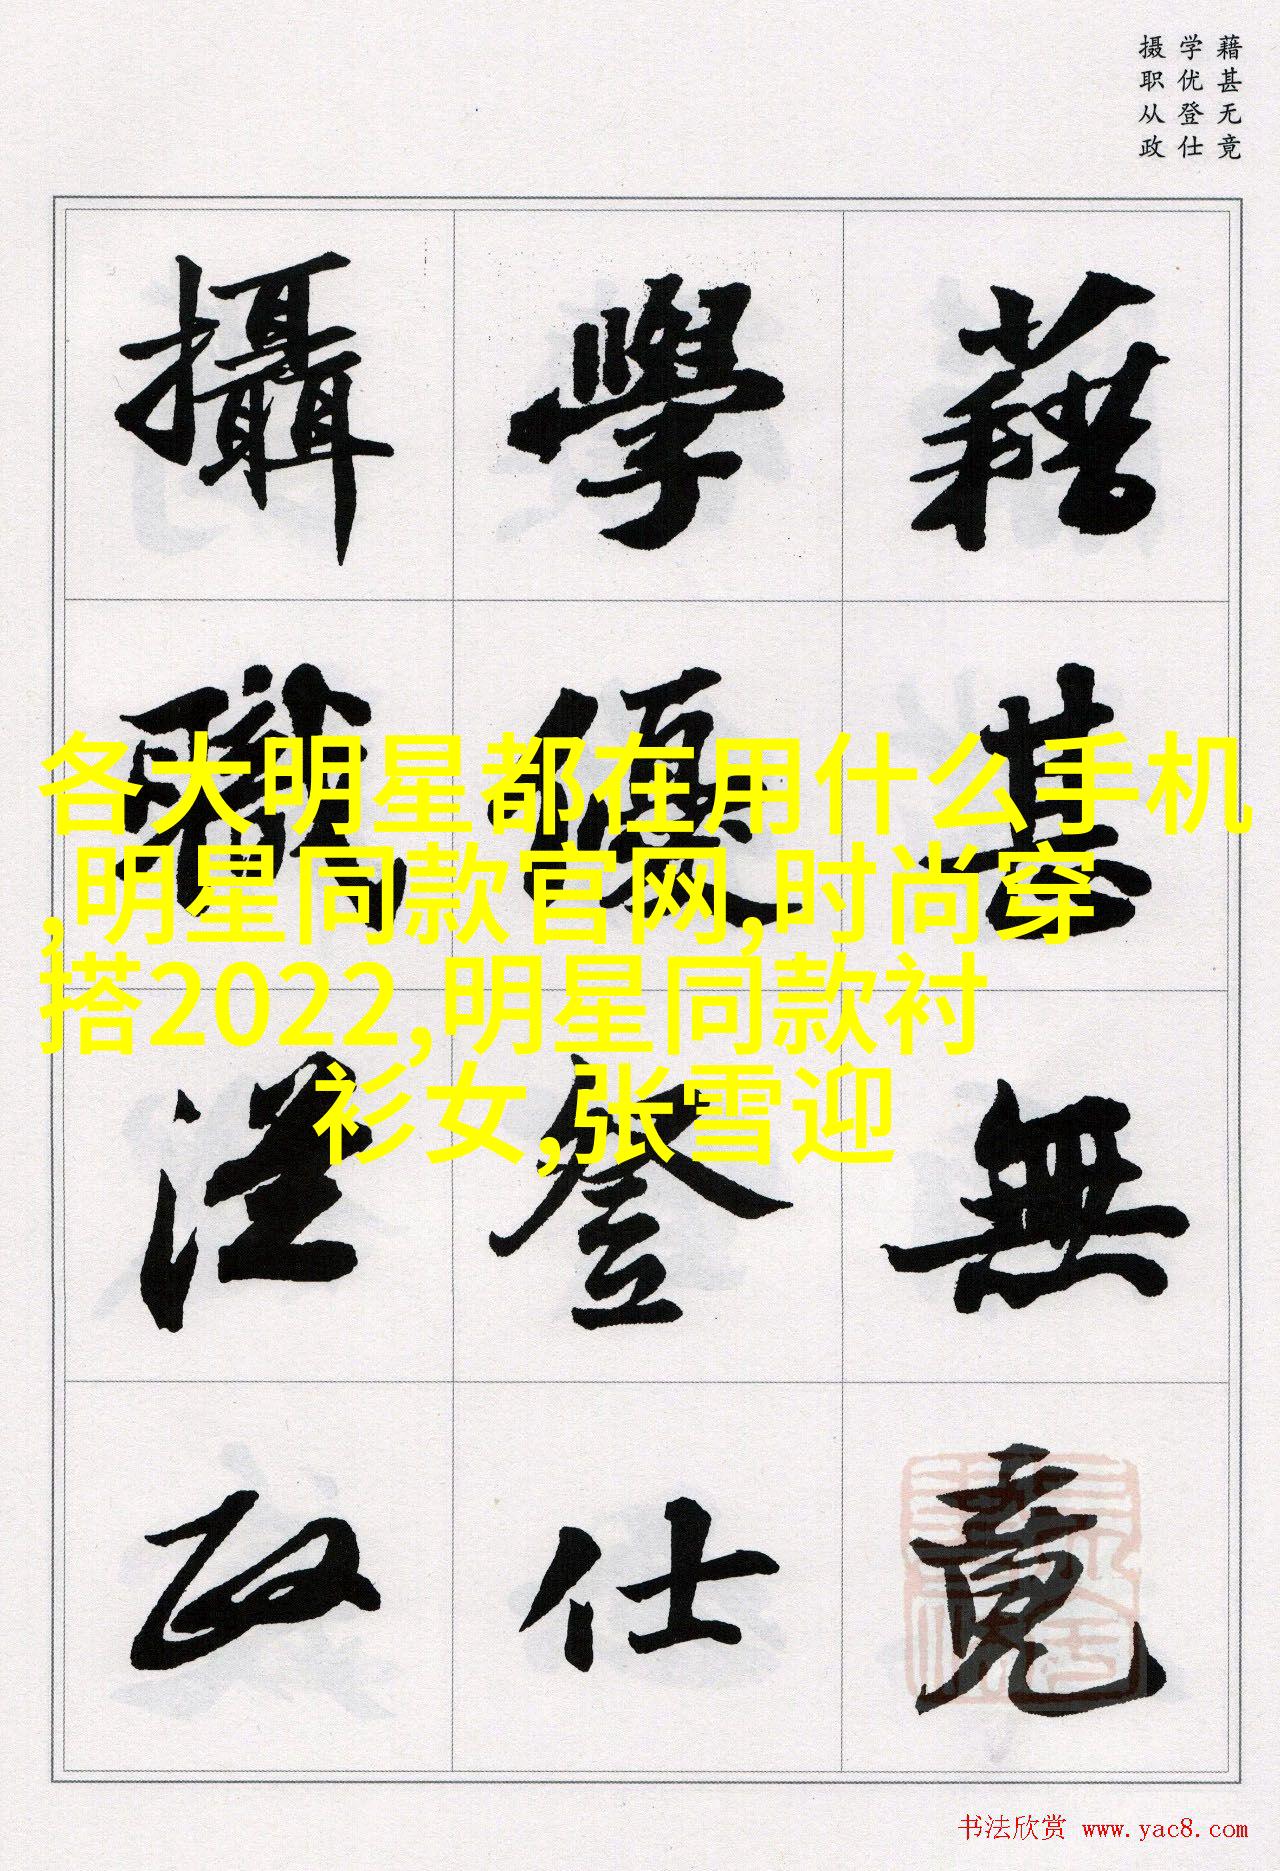 藉甚无竟
学优登仕
摄职从政
藉甚無竟
學優登仕
攝職從政
各大明星都在用什么手机
,明星同款官网,时尚穿
搭2022,明星同款衬
衫女,张雪迎
书法欣赏 www.yac8.com